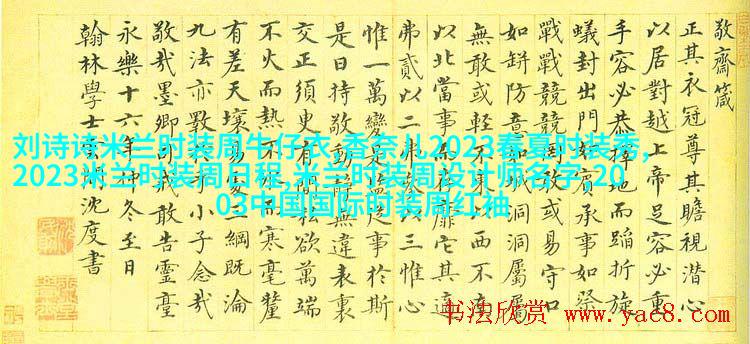 敬齋箴
正其衣冠尊其瞻視潛心
以居對越上帝足容必重
手容必恭擇地而蹈折旋
蟻封出門如賓承事如祭
戰戰兢兢罔敢或易守口
如缾防意如城洞洞屬屬
無敢或輕不東以西不南
以北當事而存靡它其適
弗貳以二弗參以三惟心
惟一萬變是監從事於斯
是曰持敬動靜無違表裏
交正須臾有間私欲萬端
不火而熱不冰而寒毫釐
有差天壤易處三綱既淪
九法亦斁於乎小子念哉
敬哉墨卿司戒敢告靈臺
永樂十六年仲冬至日
翰林學士雲間沈度書
刘诗诗米兰时装周牛仔衣,香奈儿2021春夏时装秀,
2023米兰时装周日程,米兰时装周设计师名字,20
03中国国际时装周红袖
书法欣赏
www.yac8.com